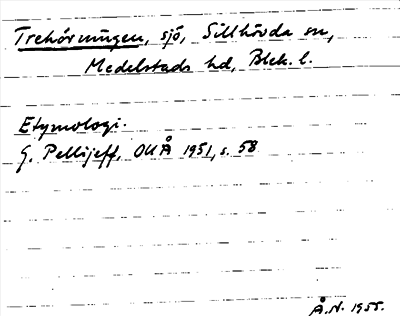 Trehörningen, sjö, Sillhövda sn,
Medelstads hd, Blek. l.
Etymologi.
G. Pellijeff, OUÅ 1951, s. 58
Å.N. 1955.